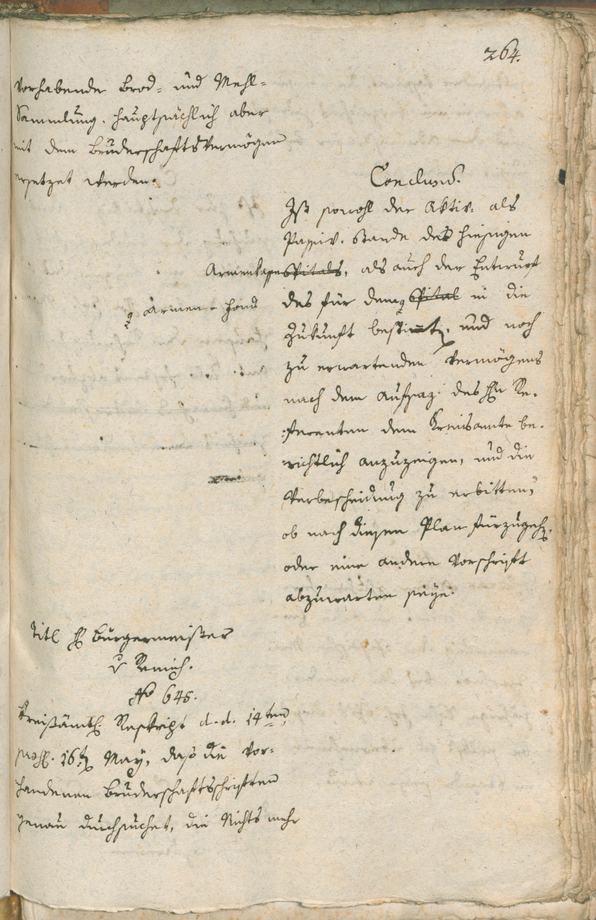 264.
vorhabende Brod- und Mehl-
Sammlung. hauptsächlich aber
mit dem Bruderschaftsvermögen
ersetzet werden.
Conclus.
Ist sowohl der Aktiv. als
Passiv. Stande des hiesigen
Armen spitals, als auch der Entwurf
des für dem Spital in die
Armen-Fond
Zukunft bestimt, und noch
zu erwartenden Vermögens
nach dem Aufsaz des Hn Re-
ferenten dem Kreisamte be-
richtlich anzuzeigen, und die
Verbescheidung zu erbitten,
ob nach diesem Plan fürzugeh.
oder eine andere Vorschrift
abzuwarten seye.
Titl H Burgermeister
v
No 645.
Kreisämtl. Reskript d. d. 14ten
16t May, daß die vor-
handenen Bruderschaftsschriften
genau durchsuchet, die Nichts mehr